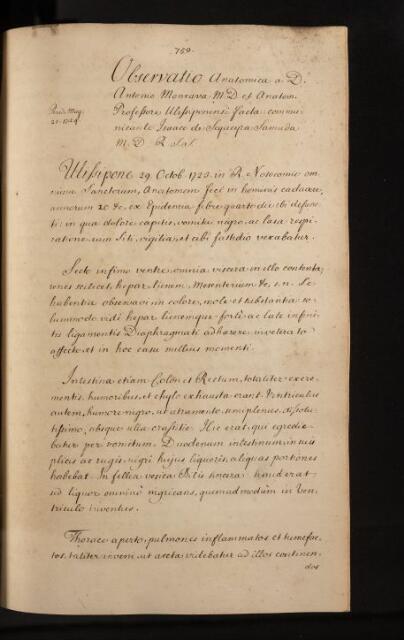 759.
Observatio Anatomica a D.
Antonio Monrava M.D et Anatom.
Professore Ulissiponensi facta commu-
nicante Isaaco de Sequeyra Samuda
M. D R. S.al.
Read May
21. 1724
Ulissipone 29. Octob. 1723. in R. Notocomio om-
nium Sanctorum, Anatomen feci in hominis cadavere,
annorum 20 &c. ex Epidemia febre quarto die ibi defunc-
ti: in qua dolore capitis, vomitu nigro, ac laesa respi-
ratione, cum Siti, vigilia, et cibi fastidio vexabatur.
Secto infimo ventre, omnia viscera in illo contenta,
renes scilicet, hepar, lienem, Mesenterium &c. s. n. se
habentia observavi in colore, mole et substantia: so-
lummodo vidi hepar lienemque forti ac late infini-
tis ligamentis Diaphragmati adhaerere inveterato
affectu, et in hoc casu nullius momenti.
Intestina etiam Colon et Rectum, totaliter excre-
mentis, humoribus, et chylo exhausta erant. Ventriculus
autem, humore nigro, ut atramento, semiplenus, dissolu-
tissimo, absque ulla crassitie. Hic erat, qui egredie-
batur per vomitum. Duodenum intestinum in suis
plicis ac rugis, nigri hujus liquoris, aliquas portiones
habebat. In fellea vesica Bilis sincera haud erat
sed liquor omnino nigricans, quemadmodum in Ven-
triculo inventus.
Thorace aperto, pulmones inflammatos et tumefac-
tos, taliter inveni, ut arcta videbatur ad illos continen-
dos